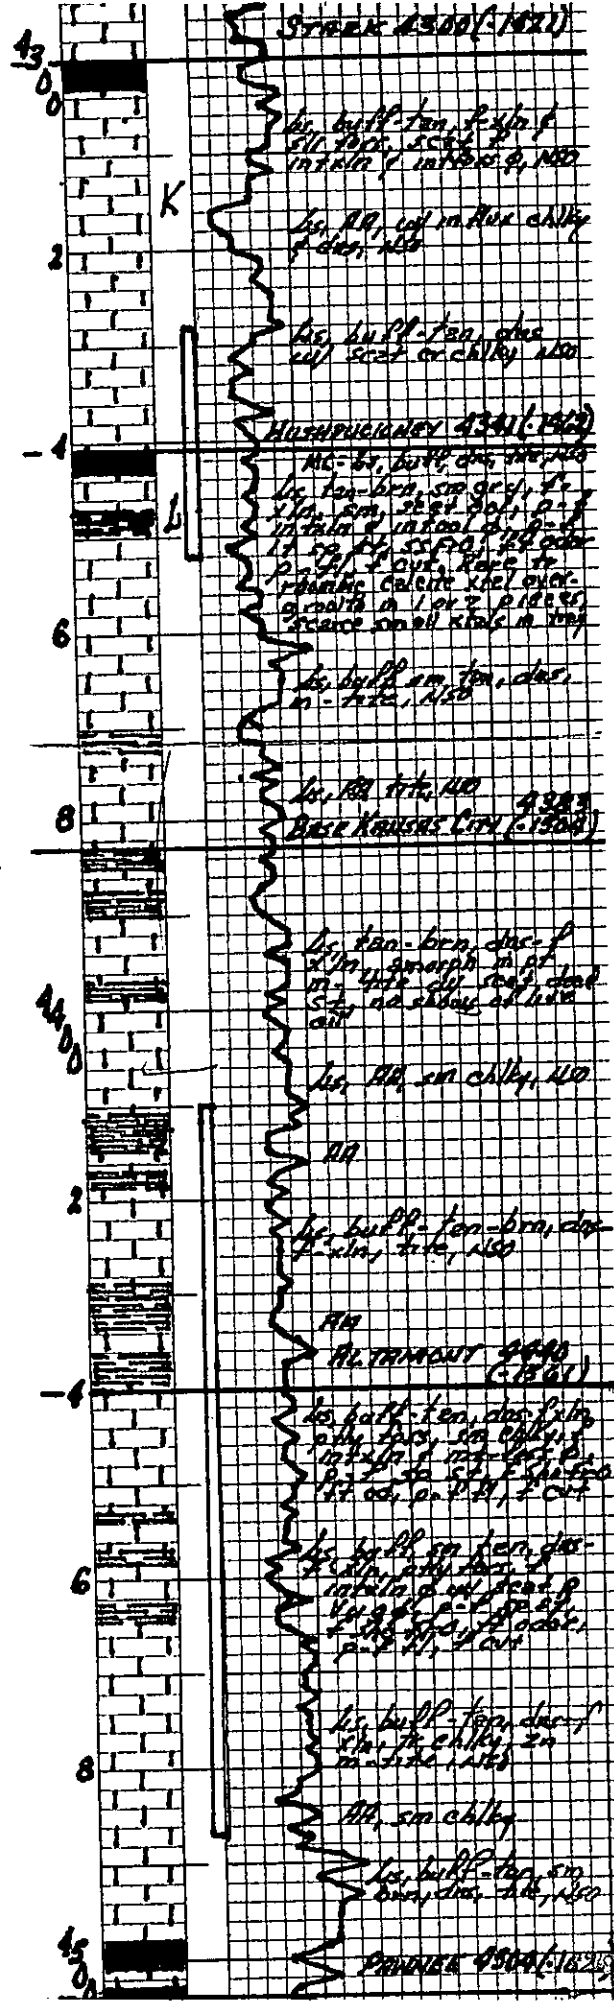 STARK 4300 (-1421)
43
0
0
Ls, buff-tan, f-xln &
sli foss, scat p
intxln & intfoss p, NSO
K
Ls, AA, w/ influx chlky
& dns, NSO
2
Ls, buff-tan, dns
w/ scat chlky NSO
HUSHPUCKNEY 4341
4
Ls, buff, dns, tite, NSO
Ls, tan-brn, sm gry, f-
xln, sm, scat ool, p-f
L
intxln & intool p, p-f
lt sp st, SSFO, ft odor
p-f fl, f cut, Rare
calcite xtal over-
growth in 1 or 2 pieces,
scarce small xtals in tray
6
Ls, buff sm tan, dns,
m-tite, NSO
Ls, AA, tite, NSO
4383
8
BASE KANSAS CITY (-1504)
Ls, tan-brn, dns-f
xln, amorph in pt
m-tite w/ scat dead
St, no show of live
oil
44
0
0
Ls, AA, sm chlky, NSO
AA
2
Ls, buff-tan-brn, dns-
f-xln, tite, NSO
AA
ALTAMONT 4440
(-1561)
4
Ls, buff-tan, dns-f xln,
ptly foss, sm chlky, f
intxln & int-foss p,
p-f sp st, f
ft od, p-f fl, f cut
Ls, buff sm tan, dns-
f xln, ptly foss, f
6
intxln p w/ scat p
vug p, p-f sp st,
ft odor,
p-f fl, f cut
Ls, buff-tan, dns-f
xln, chlky, in
m-tite, NSO
8
AA, sm chlky
Ls, buff-tan, sm
brn, dns, tite, NSO
45
0
0
PAWNEE 4504 (-1625)